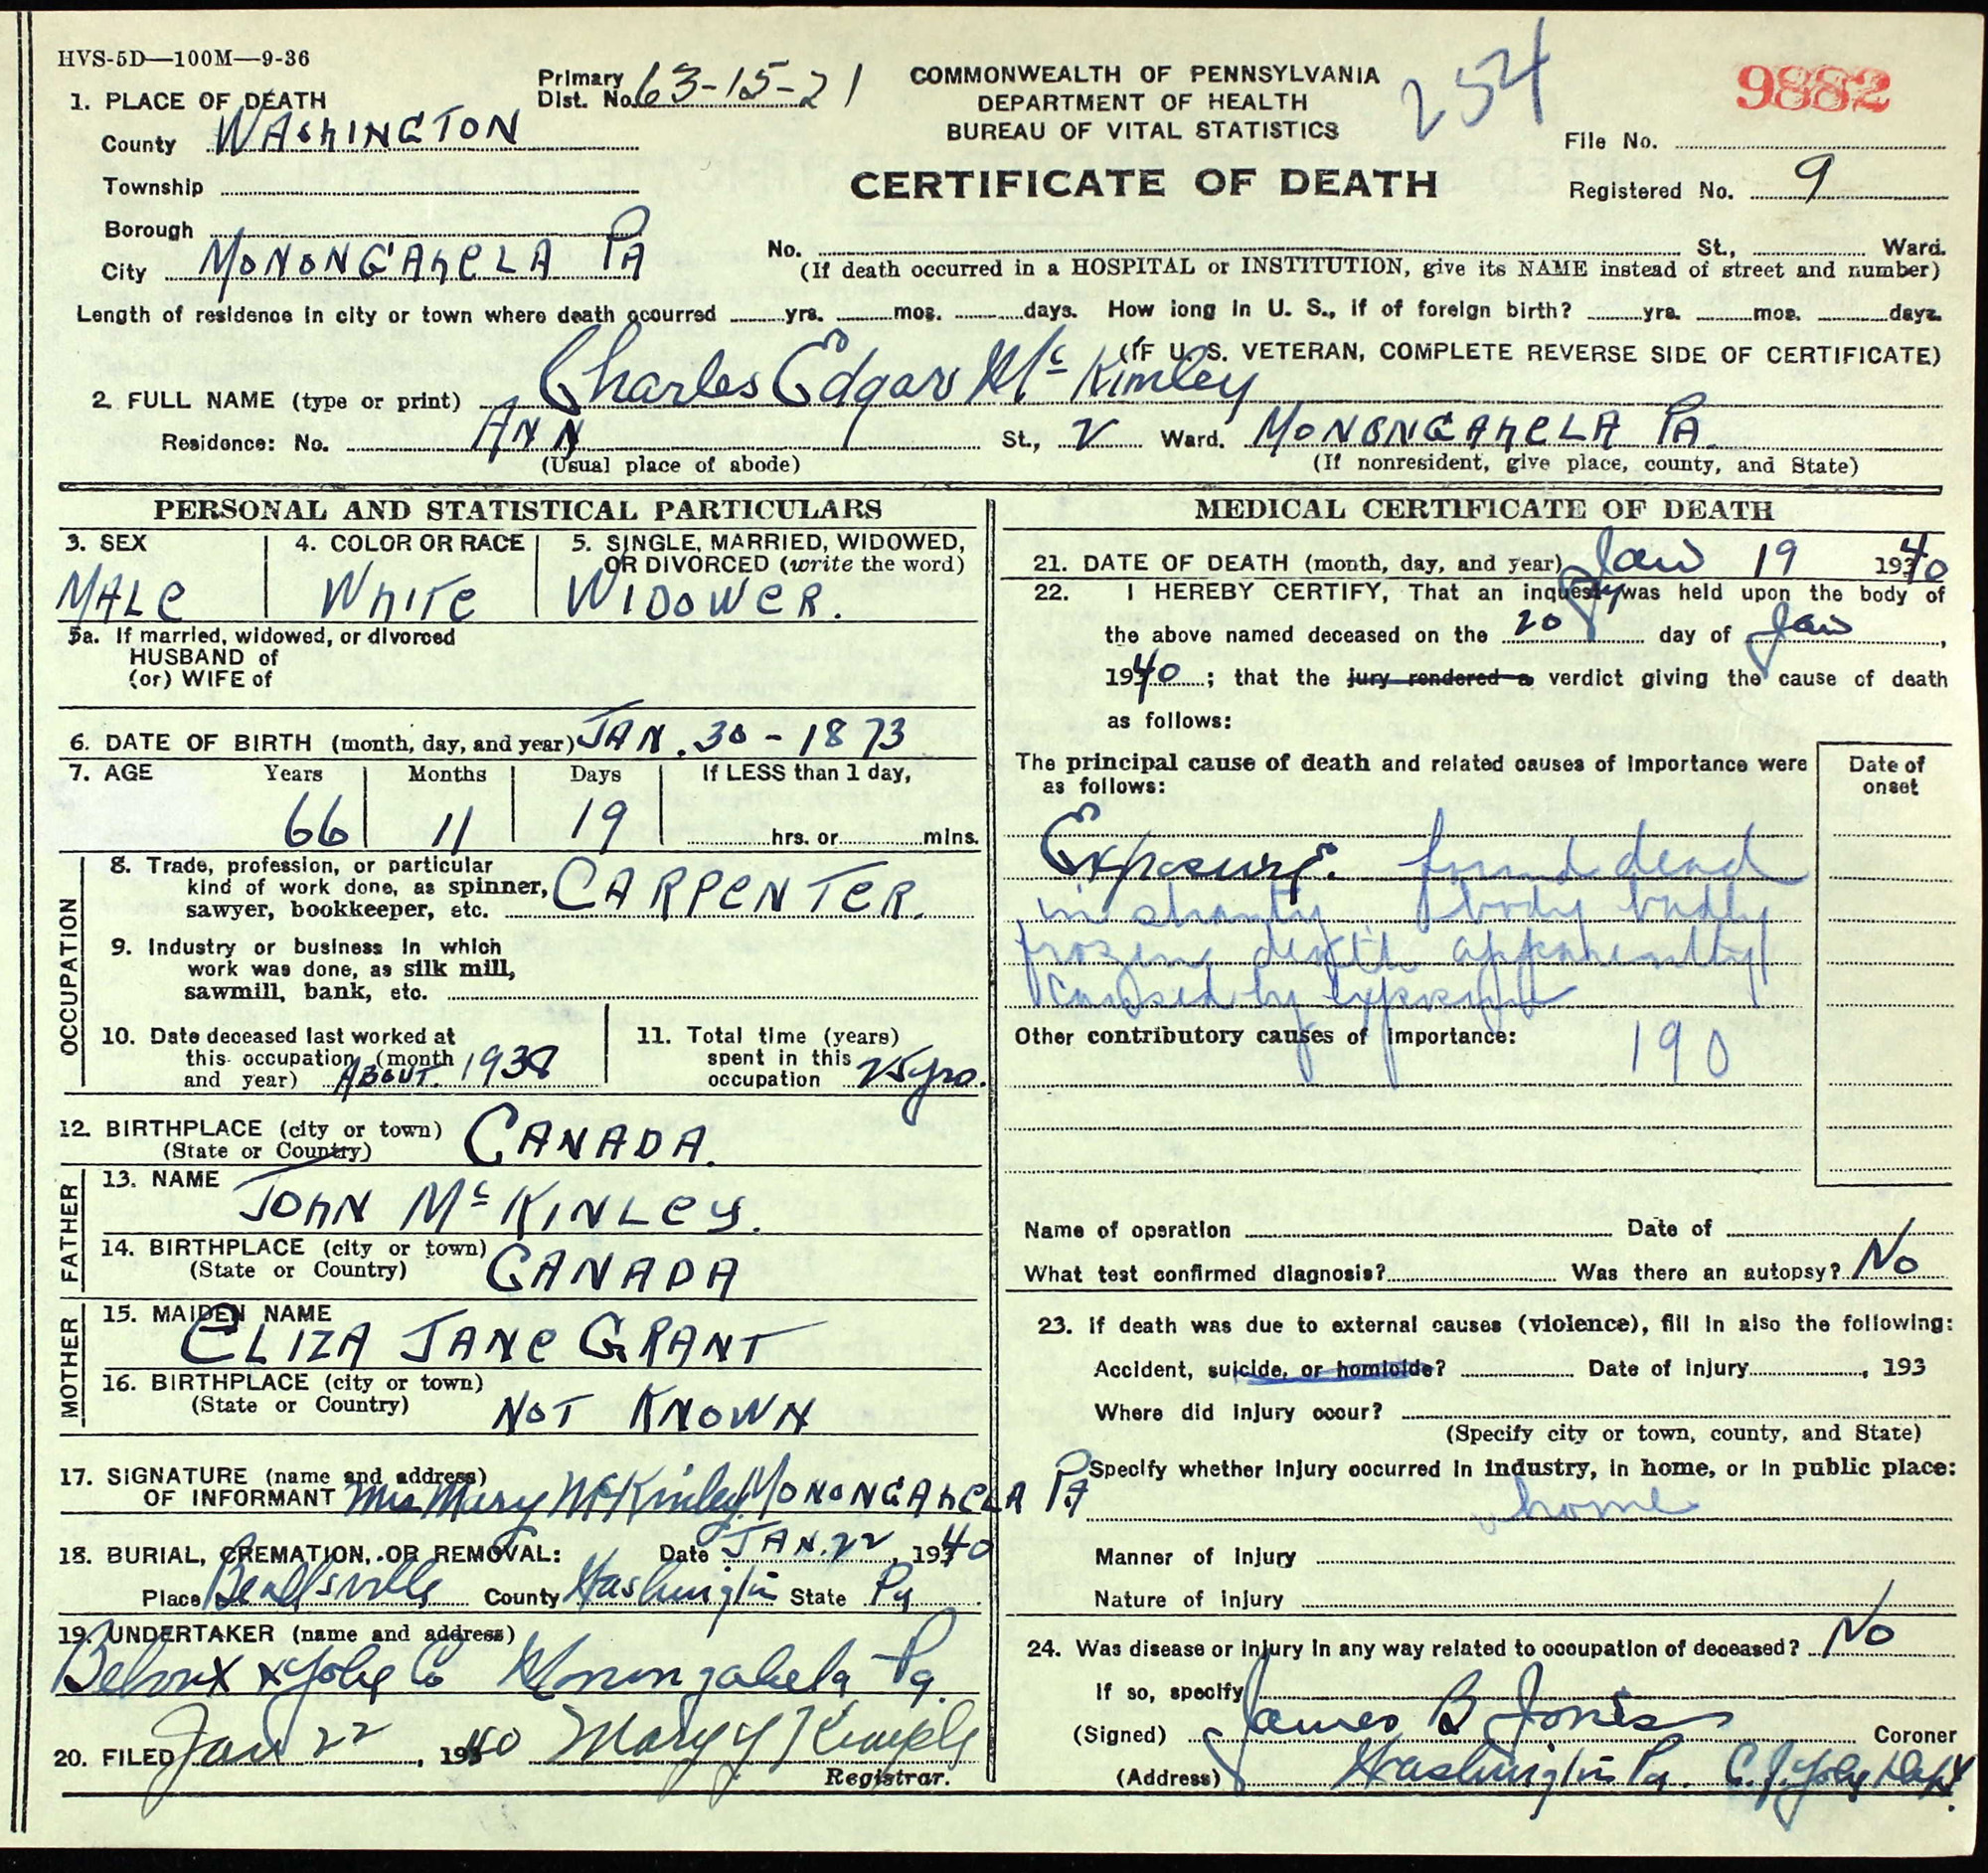 HVS-5D—100M—9-36
Primary Dist. No. 63-15-21
COMMONWEALTH OF PENNSYLVANIA
DEPARTMENT OF HEALTH
BUREAU OF VITAL STATISTICS
CERTIFICATE OF DEATH
254
9882
File No.
Registered No. 9
1. PLACE OF DEATH
County WAShINGTON
Township
Borough
City MONONGAheLA PA
No. St., Ward.
(If death occurred in a HOSPITAL or INSTITUTION, give its NAME instead of street and number)
Length of residence in city or town where death occurred yrs. mos. days. How long in U. S., if of foreign birth? yrs. mos. days.
(IF U. S. VETERAN, COMPLETE REVERSE SIDE OF CERTIFICATE)
2. FULL NAME (type or print) Charles Edgar Mc Kinley
Residence: No. ANN St., 2 Ward. MONONGAheLA PA.
(Usual place of abode) (If nonresident, give place, county, and State)
PERSONAL AND STATISTICAL PARTICULARS
3. SEX 4. COLOR OR RACE 5. SINGLE, MARRIED, WIDOWED, OR DIVORCED (write the word)
MALe WhITe WIDOWeR.
5a. If married, widowed, or divorced
HUSBAND of
(or) WIFE of
6. DATE OF BIRTH (month, day, and year) JAN. 30 - 1873
7. AGE Years Months Days If LESS than 1 day,
66 11 19 hrs. or mins.
OCCUPATION
8. Trade, profession, or particular
kind of work done, as spinner,
sawyer, bookkeeper, etc. CARPeNTeR.
9. Industry or business in which
work was done, as silk mill,
sawmill, bank, etc.
10. Date deceased last worked at
this occupation (month
and year) ABOUT. 1938
11. Total time (years)
spent in this
occupation 25 yrs.
12. BIRTHPLACE (city or town) CANADA.
(State or Country)
FATHER
13. NAME
JOhN Mc KINLey.
14. BIRTHPLACE (city or town) CANADA
(State or Country)
MOTHER
15. MAIDEN NAME
eLIZA JANe GRANT
16. BIRTHPLACE (city or town)
(State or Country) NOT KNOWN
17. SIGNATURE (name and address)
OF INFORMANT Mrs Mary McKinley MONONGAheLA PA
18. BURIAL, CREMATION, OR REMOVAL: Date JAN. 22, 1940
Place Beallsville County Washington State Pa
19. UNDERTAKER (name and address)
Co Monongahela Pa.
20. FILED Jan 22, 1940 Mary Y
Registrar.
MEDICAL CERTIFICATE OF DEATH
21. DATE OF DEATH (month, day, and year) Jan 19 1940
22. I HEREBY CERTIFY, That an inquest was held upon the body of
the above named deceased on the 20 day of Jan,
1940; that the jury rendered a verdict giving the cause of death
as follows:
The principal cause of death and related causes of importance were
as follows:
Date of onset
Exposure. found dead
in shanty body badly
frozen death apparently
caused by exposure
Other contributory causes of importance: 190
Name of operation Date of
What test confirmed diagnosis? Was there an autopsy? No
23. If death was due to external causes (violence), fill in also the following:
Accident, suicide, or homicide? Date of injury, 193
Where did injury occur?
(Specify city or town, county, and State)
Specify whether injury occurred in industry, in home, or in public place:
home
Manner of injury
Nature of injury
24. Was disease or injury in any way related to occupation of deceased? No
If so, specify
(Signed) James B Jones Coroner
(Address) Washington Pa.